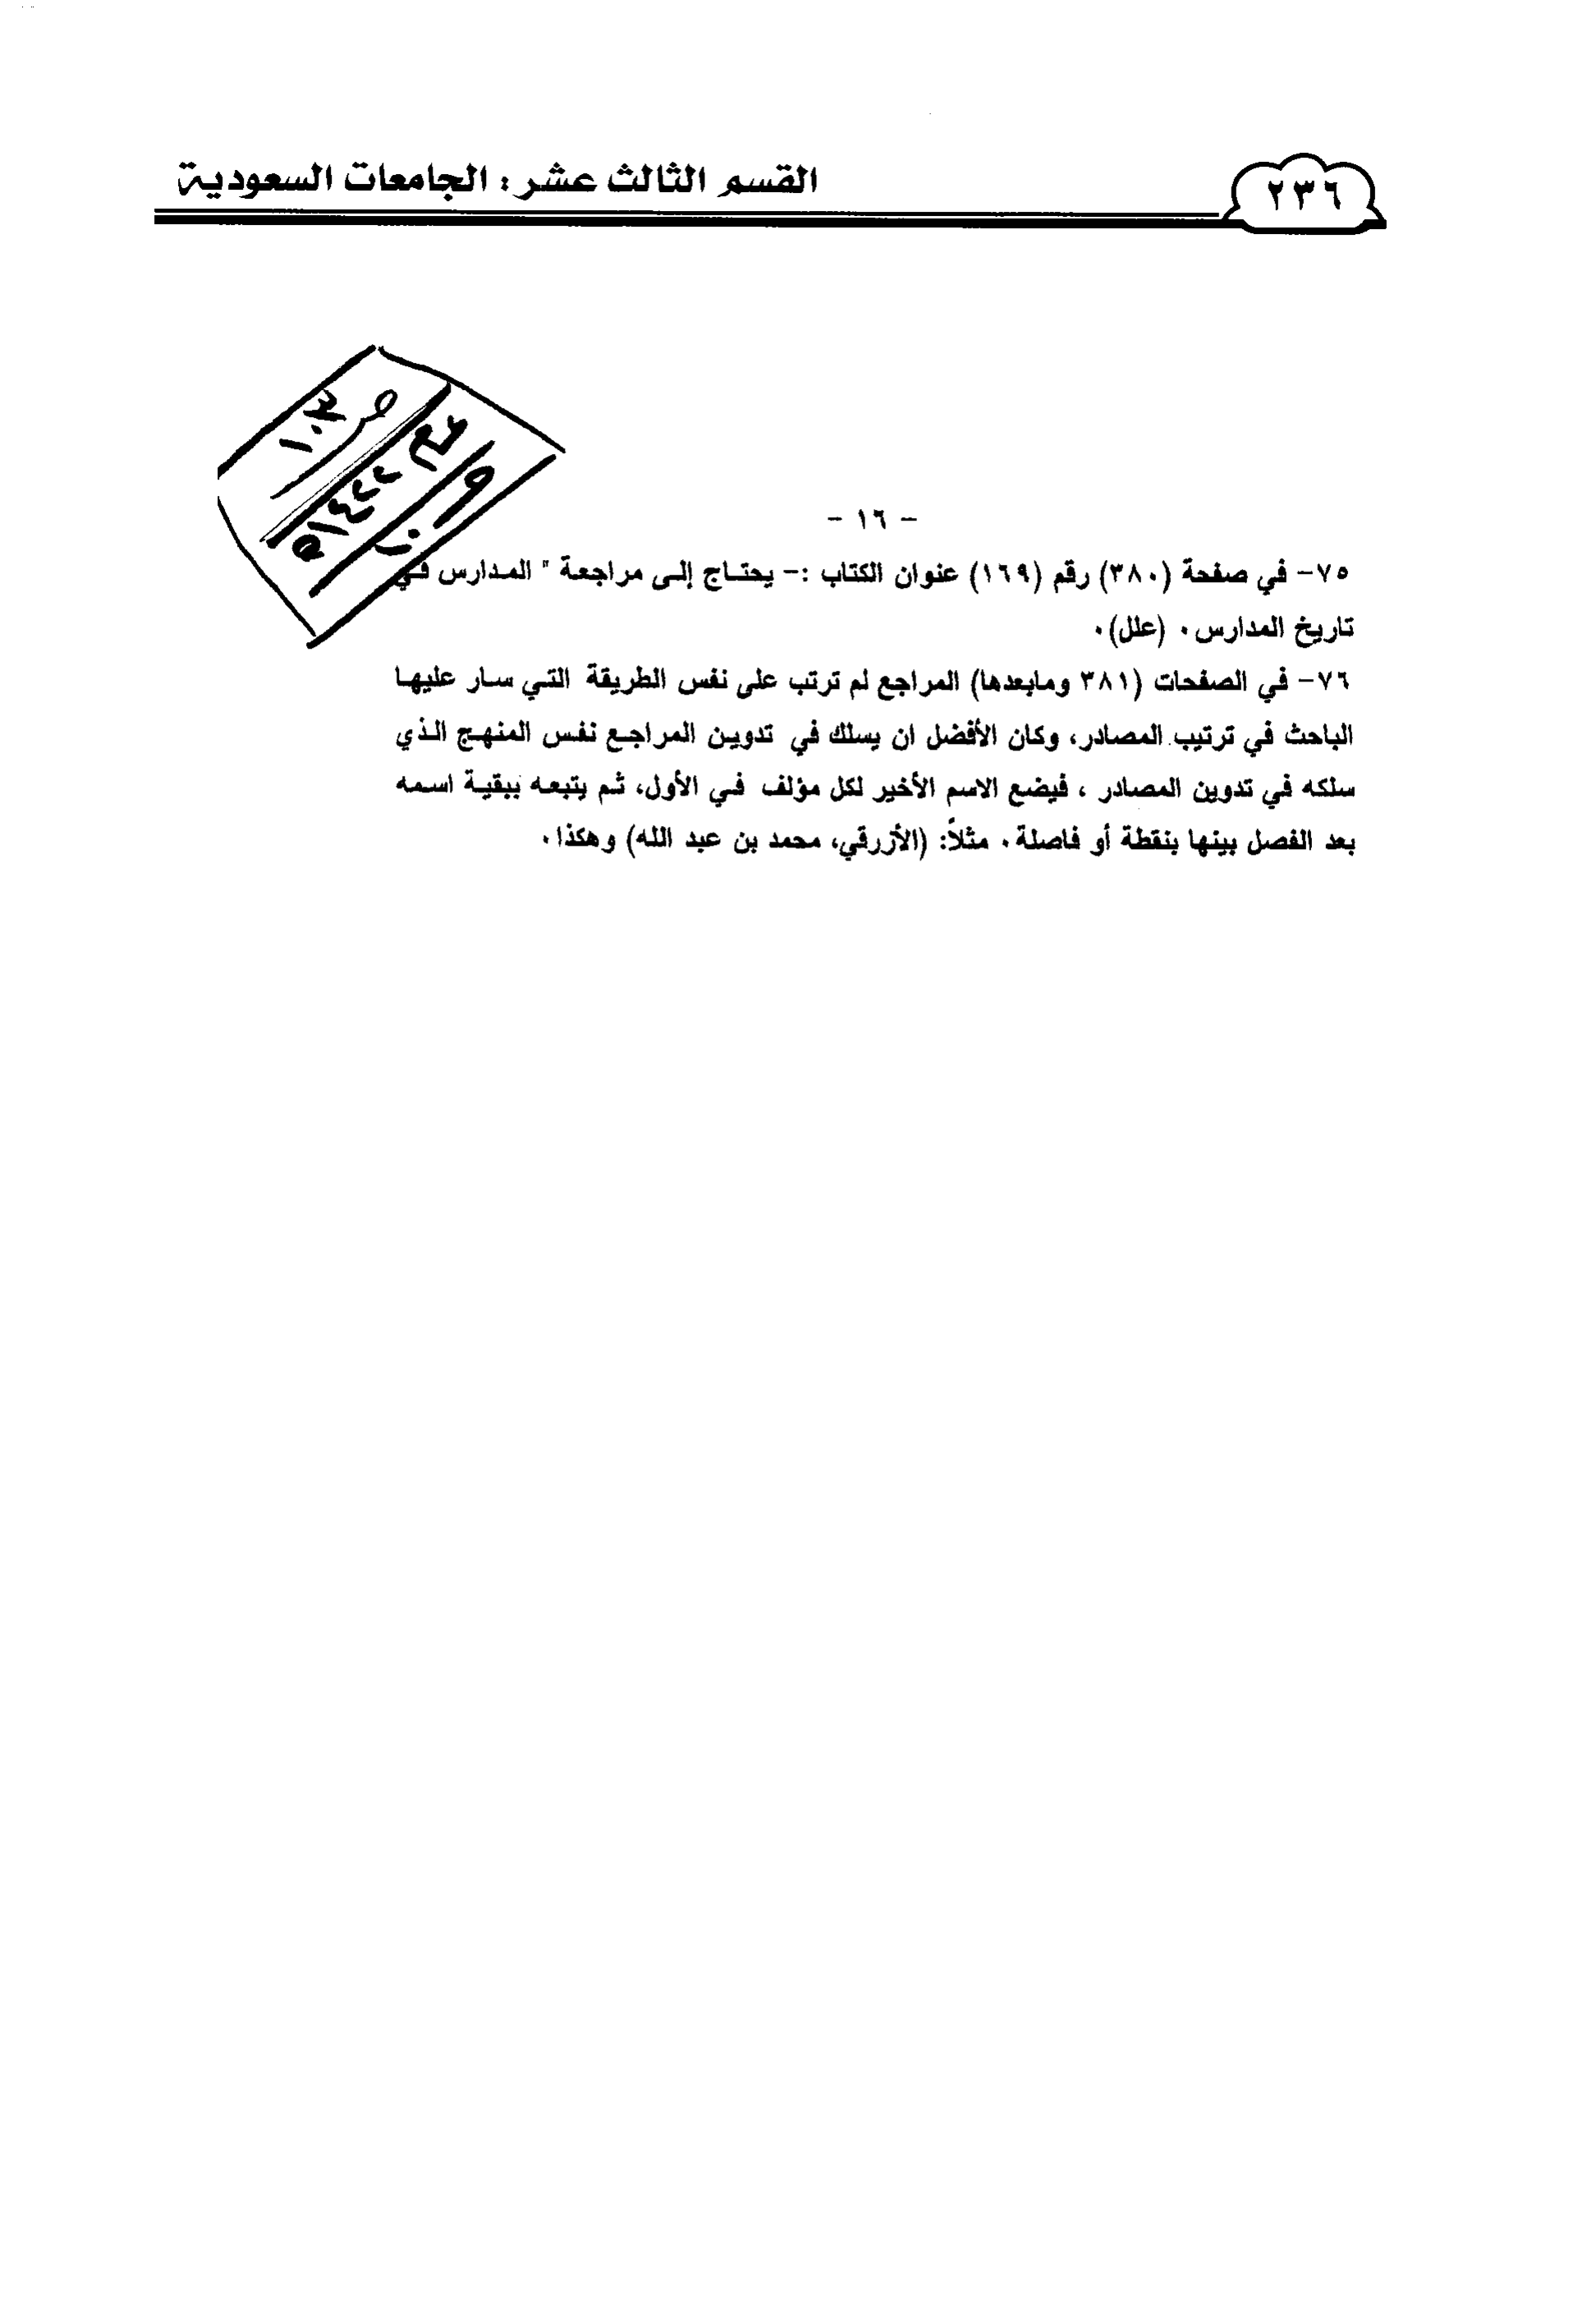 ٢٣٦
القسم الثالث عشر : الجامعات السعودية
ص
١٠٣
١٤٢٢هـ
- ١٦ -
٧٥- في صفحة (٣٨٠) رقم (١٦٩) عنوان الكتاب :- يحتاج إلى مراجعة " المدارس في
تاريخ المدارس. (علل).
٧٦- في الصفحات (٣٨١ ومابعدها) المراجع لم ترتب على نفس الطريقة التي سار عليها
الباحث في ترتيب المصادر، وكان الأفضل ان يسلك في تدوين المراجع نفس المنهج الذي
سلكه في تدوين المصادر ، فيضع الاسم الأخير لكل مؤلف في الأول، ثم يتبعه ببقية اسمه
بعد الفصل بينها بنقطة أو فاصلة. مثلاً: (الأزرقي، محمد بن عبد الله) وهكذا.